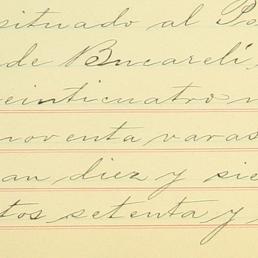 situado al Po
de Bucareli,
veinticuatro v
noventa varas
an diez y sie
tos setenta y